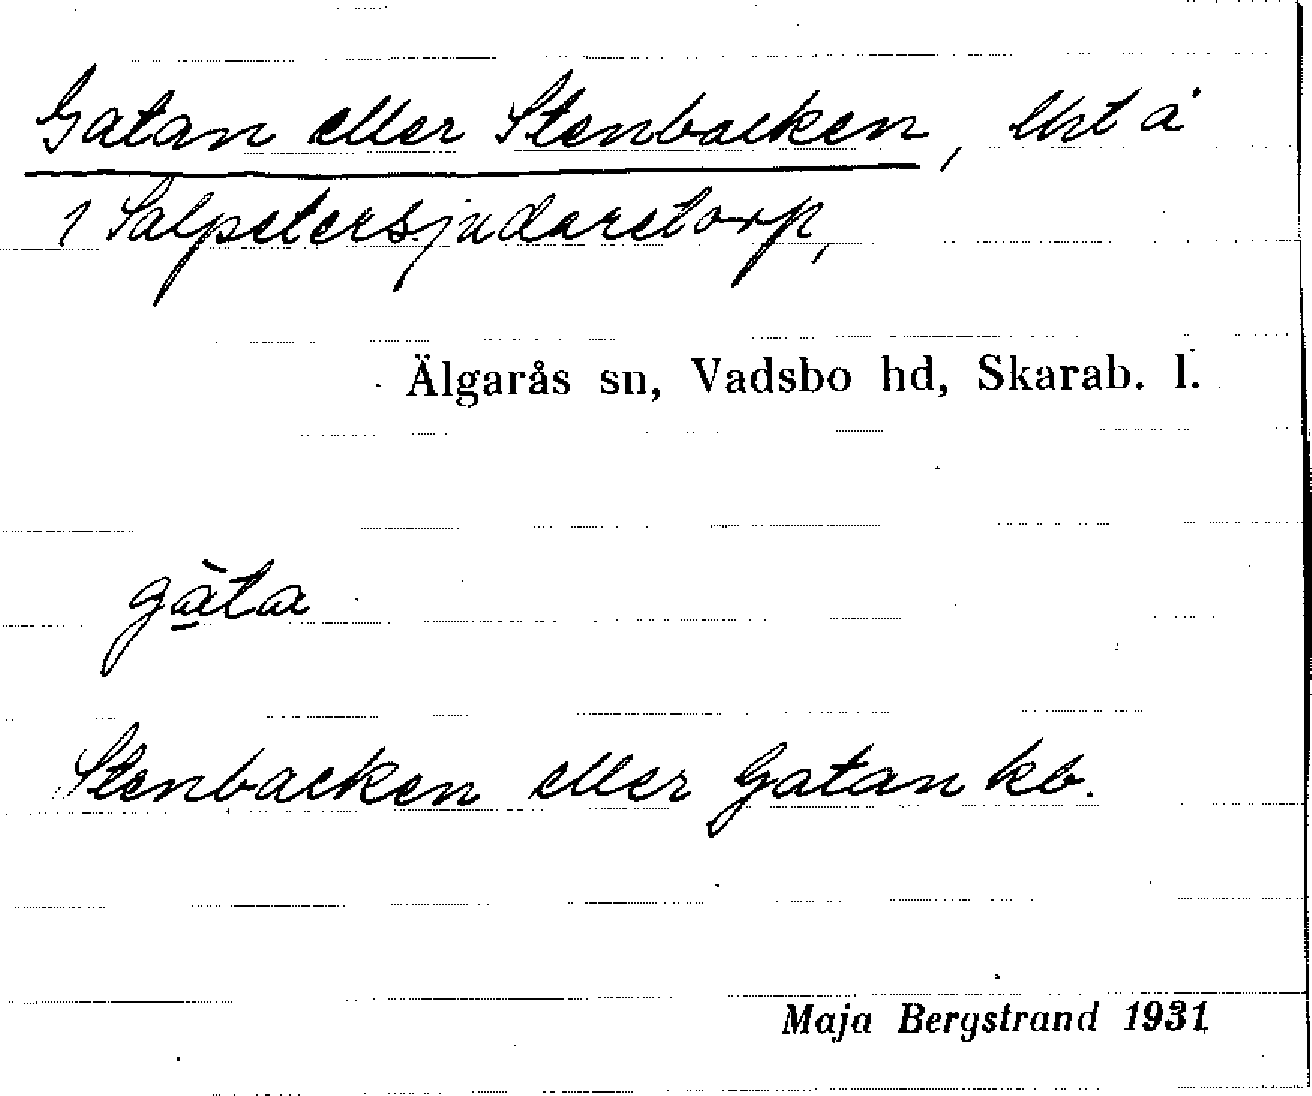 Gatan eller Stenbacken, lht å
1 Salpetersjudaretorp,
Älgarås sn, Vadsbo hd, Skarab. l.
gàta
Stenbacken eller Gatan kb.
Maja Bergstrand 1931